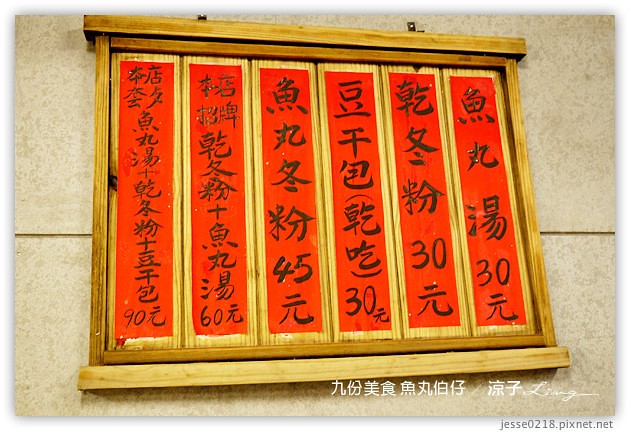 魚丸湯30元
乾冬粉30元
豆干包(乾吃)30元
魚丸冬粉45元
本店招牌乾冬粉+魚丸湯60元
本店套魚丸湯+乾冬粉+豆干包90元
九份美食 魚丸伯仔 / 涼子 Liang
jesse0218.pixnet.net